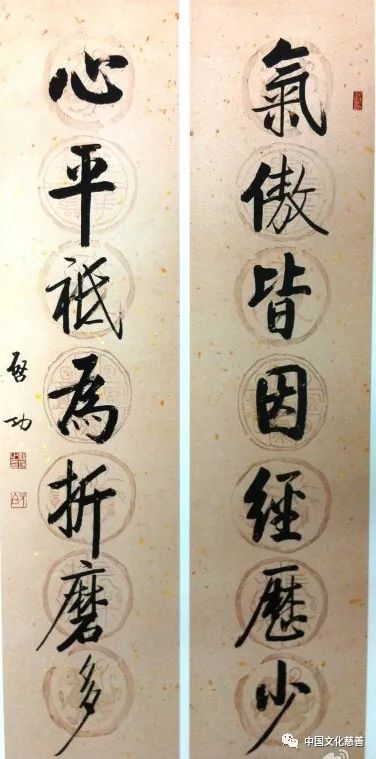 氣傲皆因經歷少
心平祗為折磨多
啓功
中国文化慈善